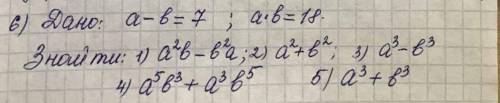 6) Дано: a-b=7 ; a·b=18.
Знайти: 1) a²b-b²a; 2) a²+b²; 3) a³-b³
4) a⁵b³+a³b⁵ 5) a³+b³